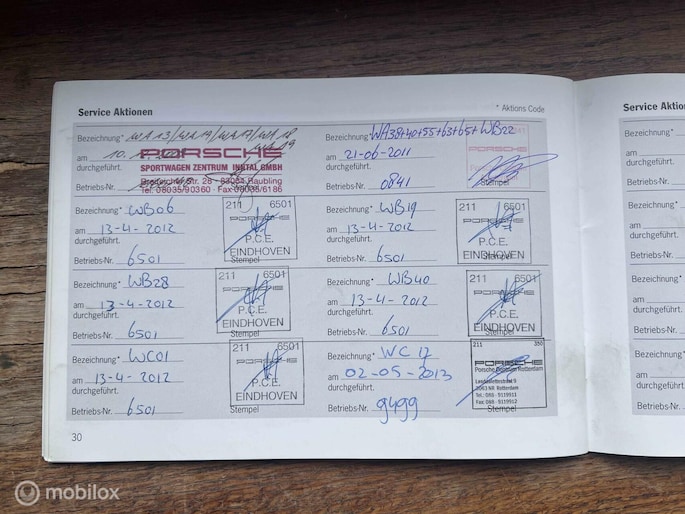 Service Aktionen
* Aktions Code
Bezeichnung* WA13/WA14/WA17/WA18
am 10.1
WA19
durchgeführt.
PORSCHE
SPORTWAGEN ZENTRUM INNTAL GMBH
Betriebs-Nr.
Str. 28 - 83064 Raubling
Tel. 08035/90360 - Fax 08035/6186
Bezeichnung WA38+40+55+63+65+WB22
am 21-06-2011
durchgeführt.
Betriebs-Nr. 0841
Stempel
Bezeichnung* WB06
am 13-4-2012
durchgeführt.
Betriebs-Nr. 6501
211 6501
PORSCHE
P.C.E.
EINDHOVEN
Stempel
Bezeichnung* WB19
am 13-4-2012
durchgeführt.
Betriebs-Nr. 6501
211 6501
PORSCHE
P.C.E.
EINDHOVEN
Stempel
Bezeichnung* WB28
am 13-4-2012
durchgeführt.
Betriebs-Nr. 6501
211 6501
PORSCHE
P.C.E.
EINDHOVEN
Bezeichnung* WB40
am 13-4-2012
durchgeführt.
Betriebs-Nr. 6501
211 6501
PORSCHE
P.C.E.
EINDHOVEN
Stempel
Bezeichnung* WC01
am 13-4-2012
durchgeführt.
Betriebs-Nr. 6501
211 6501
PORSCHE
P.C.E.
EINDHOVEN
Stempel
Bezeichnung* WC12
am 02-05-2013
durchgeführt.
Betriebs-Nr. 9499
211 350
PORSCHE
Porsche Centrum Rotterdam
Rotterdam
Tel.: 088 - 9119911
Fax: 088 - 9119912
Stempel
30
Service Aktionen
Bezeichnung*
am
durchgeführt.
Betriebs-Nr.
Bezeichnung*
am
durchgeführt.
Betriebs-Nr.
Bezeichnung*
am
durchgeführt.
Betriebs-Nr.
Bezeichnung*
am
durchgeführt.
Betriebs-Nr.
mobilox